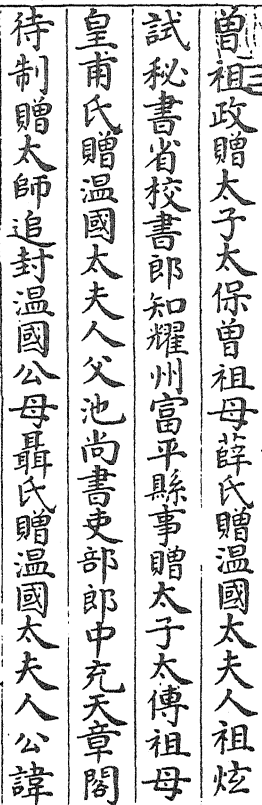 曾祖政贈太子太保曾祖母薛氏贈温國太夫人祖炫
試秘書省校書郎知耀州富平縣事贈太子太傅祖母
皇甫氏贈温國太夫人父池尚書吏部郎中充天章閣
待制贈太師追封温國公母聶氏贈温國太夫人公諱